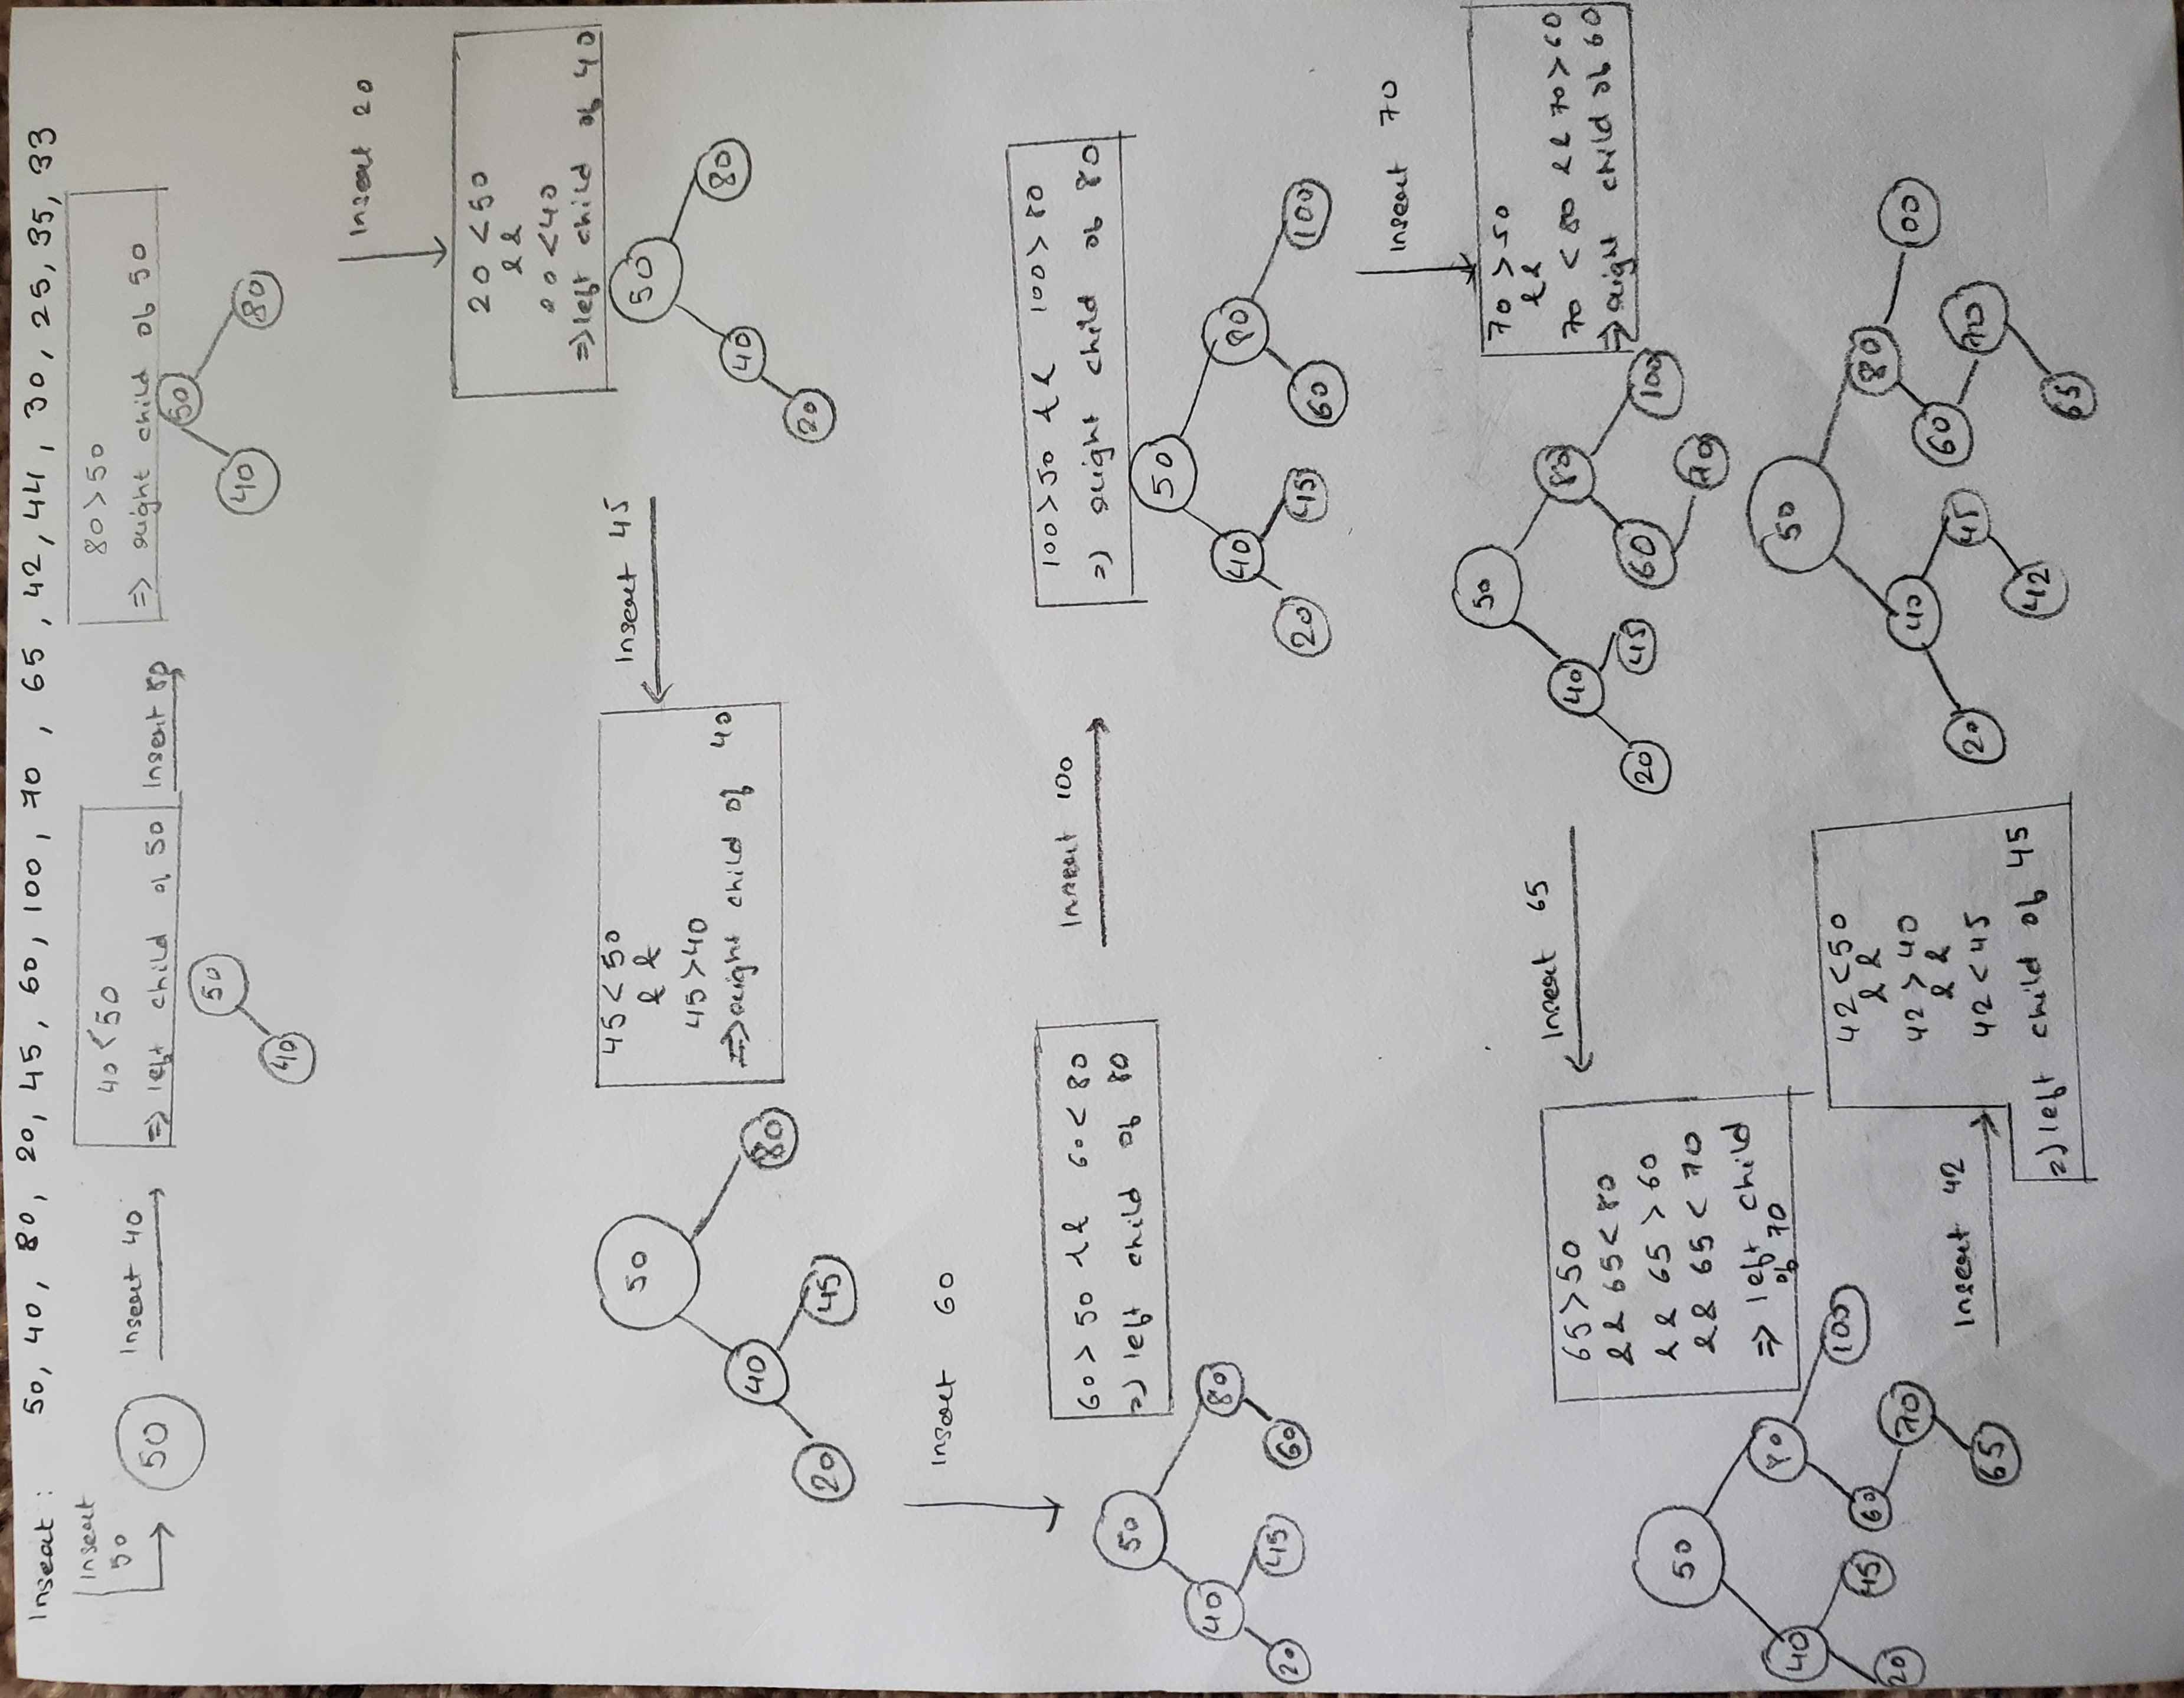 Insert : 50, 40, 80, 20, 45, 60, 100, 70, 65, 42, 44, 30, 25, 35, 33
Insert
50
50
Insert 40
40 < 50
=> left child of 50
50
40
Insert 80
80 > 50
=> right child of 50
50
40 80
Insert 20
20 < 50
&&
20 < 40
=> left child of 40
50
40 80
20
Insert 45
45 < 50
&&
45 > 40
=> right child of 40
50
40 80
20 45
Insert 60
60 > 50 && 60 < 80
=> left child of 80
50
40 80
20 45 60
Insert 100
100 > 50 && 100 > 80
=> right child of 80
50
40 80
20 45 60 100
Insert 70
70 > 50
&&
70 < 80 && 70 > 60
=> right child of 60
50
40 80
20 45 60 100
70
Insert 65
65 > 50
&& 65 < 80
&& 65 > 60
&& 65 < 70
=> left child
of 70
50
40 80
20 45 60 100
70
65
Insert 42
42 < 50
&&
42 > 40
&&
42 < 45
=> left child of 45
50
40 80
20 45 60 100
42 70
65